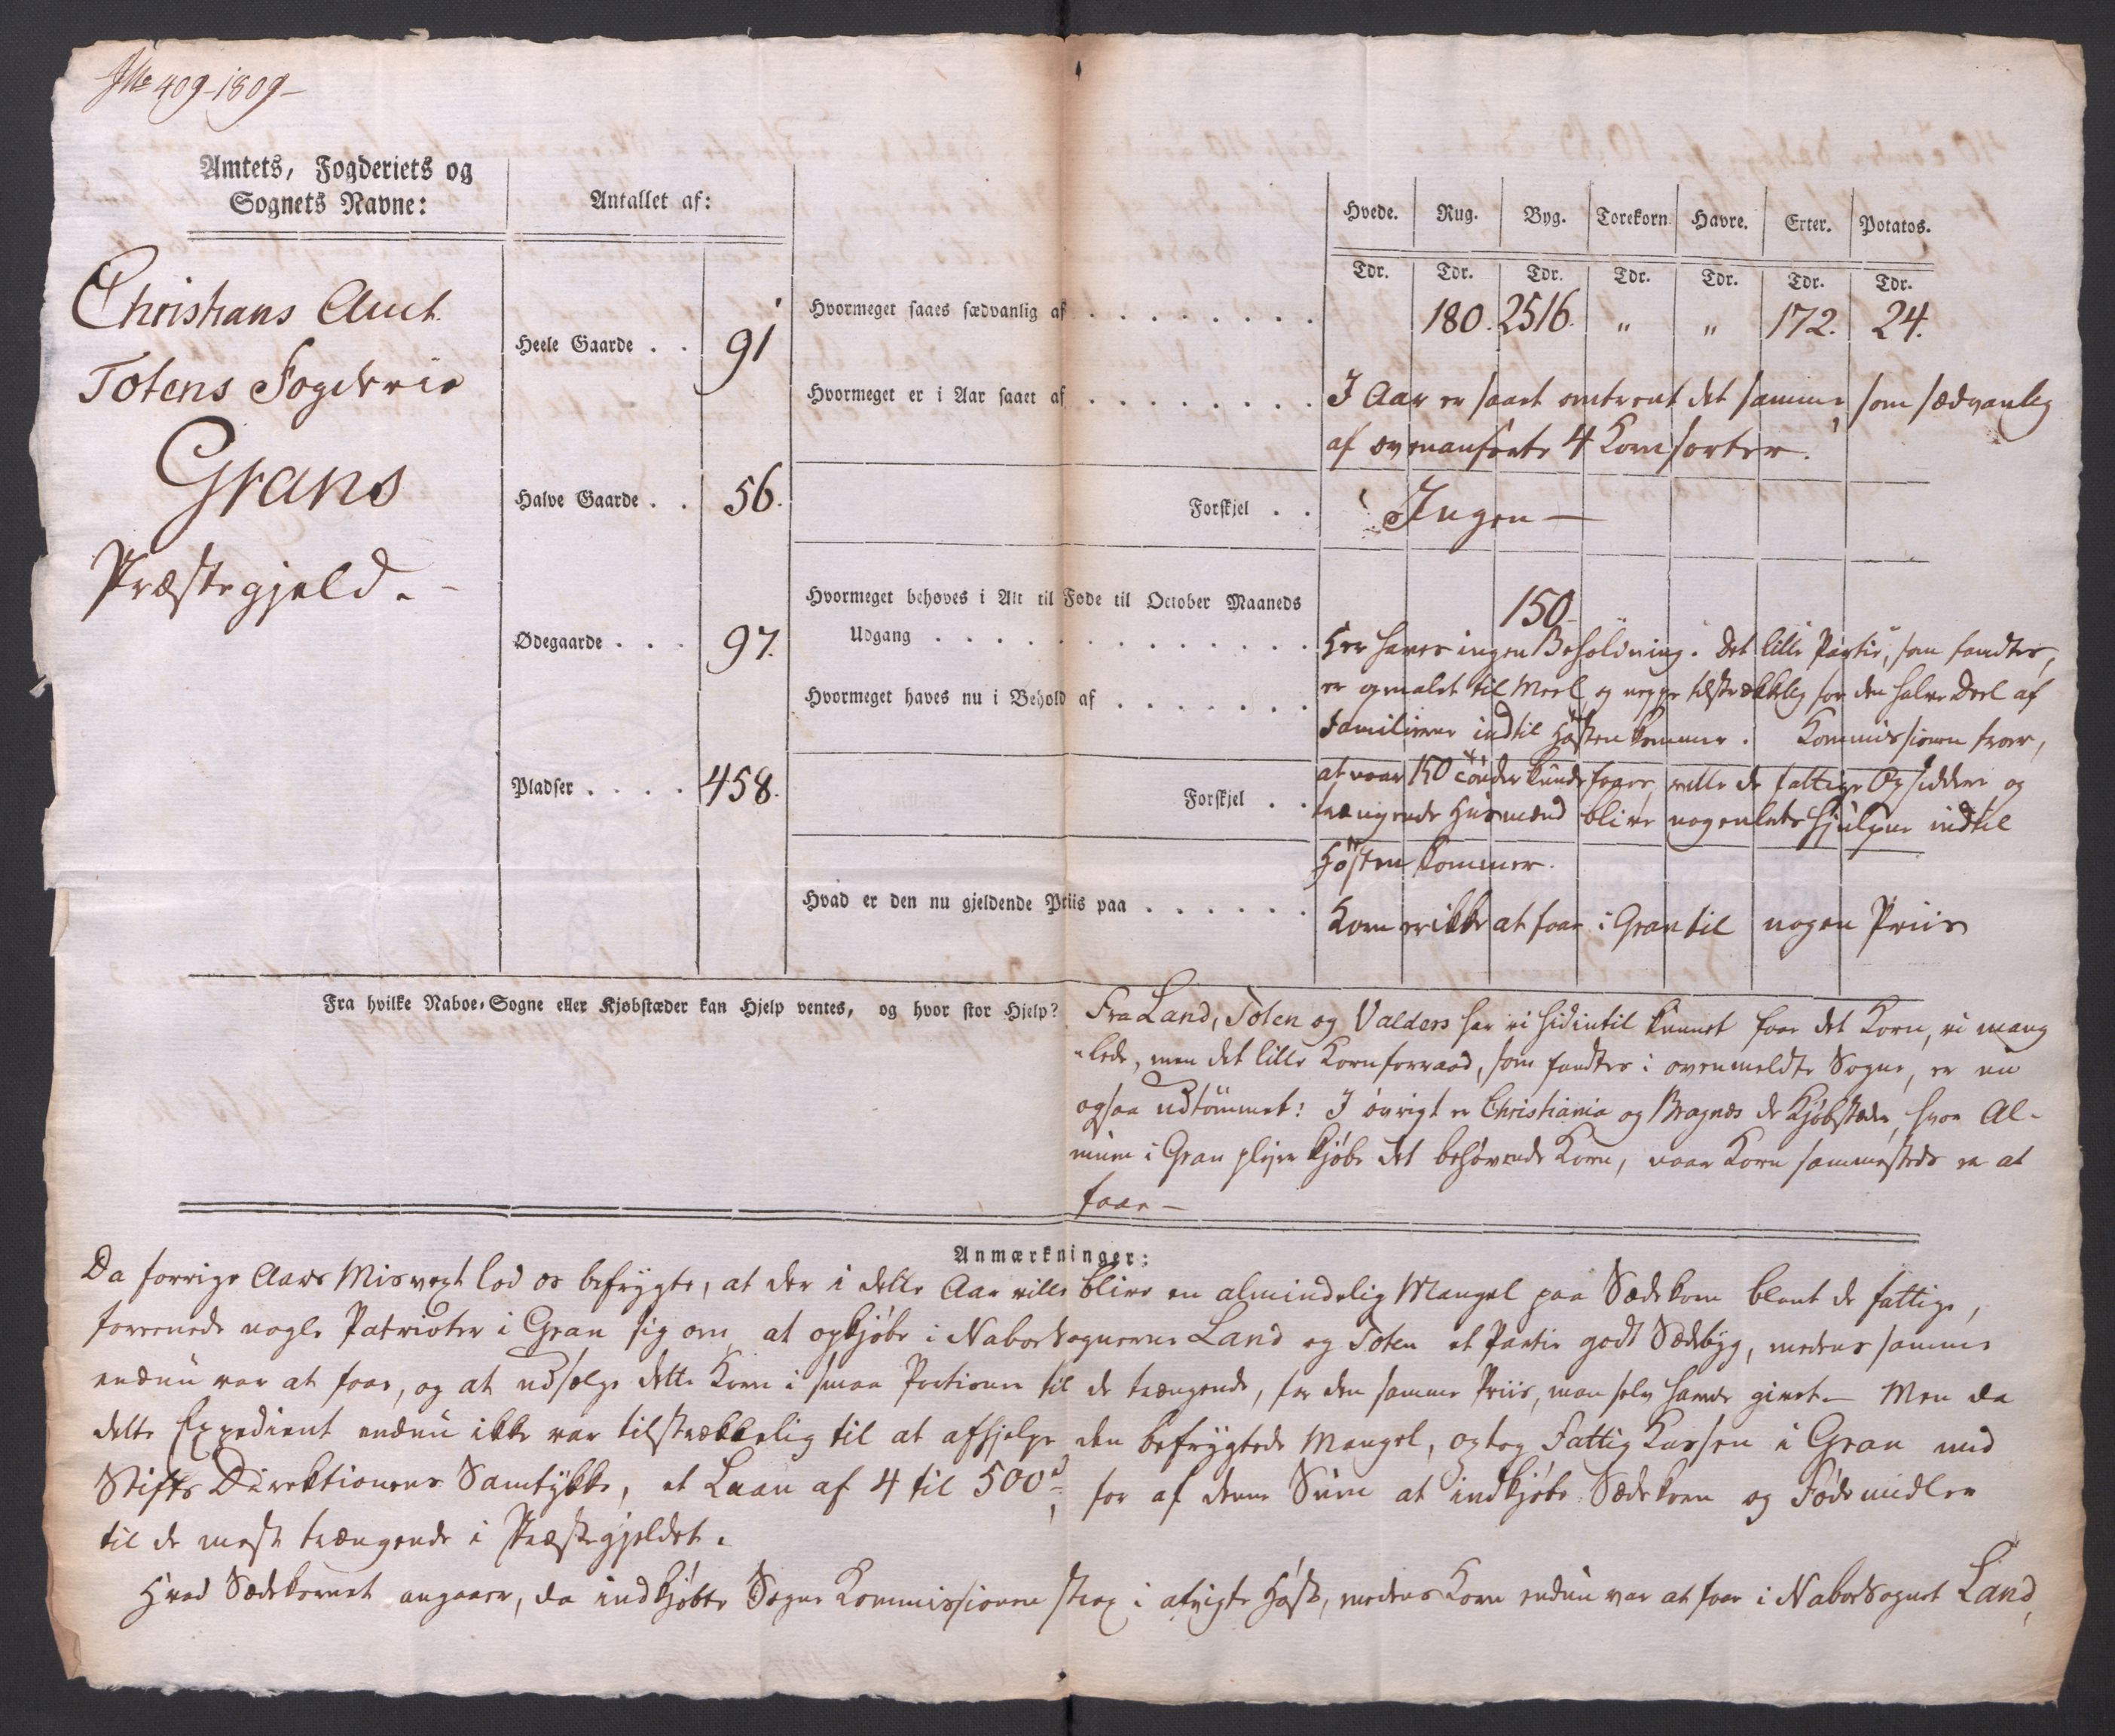 409-1809-
Amtets, Fogderiets og
Sognets Navne:
Antallet af:
Hvede. Rug. Byg. Torekorn Havre. Erter. Potatos.
Tdr. Tdr. Tdr. Tdr. Tdr. Tdr. Tdr.
Christians Amt
Totens Fogderie
Grans
Præstegjeld. -
Heele Gaarde . . 91
Halve Gaarde . . 56.
Ødegaarde . . . 97.
Pladser . . . . 458.
Hvormeget saaes sædvanlig af . . . . . . . . 180. 2516. " " 172. 24.
Hvormeget er i Aar saaet af . . . . . . . . I Aar er saaet omtrent det samme, som sædvanlig
af ovenanførte 4 Kornsorter.
Forskjel . . Ingen —
Hvormeget behøves i Alt til Føde til October Maaneds
Udgang . . . . . . . . . . . . . 150
Hvormeget haves nu i Behold af . . . . . . .
Her haves ingen Beholdning. Det lille Partie, som fandtes,
er opmalet til Meel, og neppe tilstrækkelig for den halve Deel af
Familierne indtil Høsten kommer. Kommissionen troer,
Forskjel . .
at naar 150 Tønder kunde faaes, ville de fattige Opsiddere og
trængende Husmænd blive nogenlede hjulpne indtil
Høsten kommer.
Hvad er den nu gjeldende Priis paa . . . . . . Korn er ikke at faae i Gran til nogen Priis
Fra hvilke Naboe-Sogne eller Kjøbstæder kan Hjelp ventes, og hvor stor Hjelp?
Fra Land, Toten og Valders har vi hidintil kunnet faae det Korn, vi mang
-lede, men det lille Kornforraad, som fandtes i ovenmeldte Sogne, er nu
ogsaa udtømmet: I øvrigt er Christiania og Bragnæs de Kjøbstæder, hvor Al-
muen i Gran plejer kjøbe det behøvende Korn, naar Korn sammesteds er at
faae —
Anmærkninger:
Da forrige Aars Misvext lod os befrygte, at der i dette Aar ville blive en almindelig Mangel paa Sædekorn blant de fattige,
foreenede nogle Patrioter i Gran sig om, at opkjøbe i Naboesognerne Land og Toten et Partie godt Sædebyg, medens samme
endnu var at faae, og at udsælge dette Korn i smaa Portioner til de trængende, for den samme Priis, man selv havde givet. — Men da
dette Expedient endnu ikke var tilstrækkelig til at afhjelpe den befrygtede Mangel, optog Fattig Kassen i Gran med
Stifts Direktionens Samtykke, et Laan af 4 til 500 rd, for af denne Sum at indkjøbe Sædekorn og Fødemidler
til de mest trængende i Præstegjeldet.
Hvad Sædekornet angaaer, da indkjøbte Sogne Kommissionen strax i afvigte Høst, medens Korn endnu var at faae i Naboesognet Land,